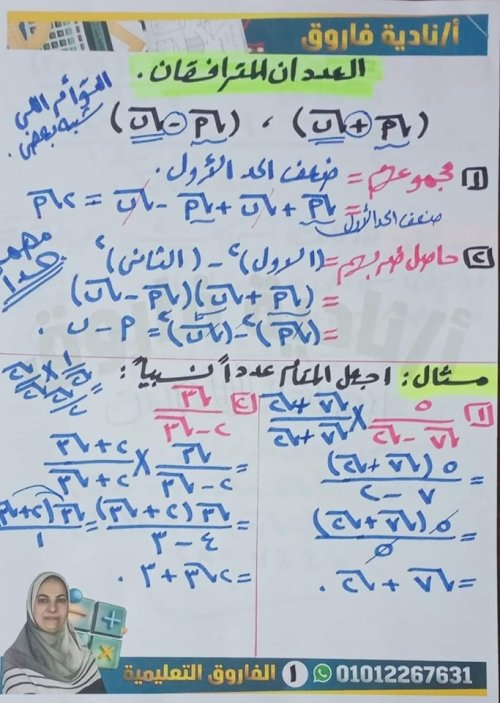 أ/نادية فاروق
العددان المترافقان.
التوائم اللى شبه بعض.
(√م + √ن) ، (√م − √ن)
١ مجموعهم = ضعف الحد الأول.
= √م + √ن + √م − √ن = ٢√م
ضعف الحد الأول
٢ حاصل ضربهم = (الاول)٢ − (الثانى)٢
مهم جداً
= (√م + √ن)(√م − √ن)
= (√م)٢ − (√ن)٢ = م − ن .
مثال: اجعل المقام عدداً نسبياً:
١ ٥/(√٧ − √٢) × (√٧ + √٢)/(√٧ + √٢)
= ٥(√٧ + √٢)/(٧ − ٢)
= ٥(√٧ + √٢)/٥
= √٧ + √٢ .
٢ √٣/(٢ − √٣)
= √٣/(٢ − √٣) × (٢ + √٣)/(٢ + √٣)
= √٣(٢ + √٣)/(٤ − ٣) = √٣(٢ + √٣)/١
= ٢√٣ + ٣ .
الفاروق التعليمية ١ 01012267631